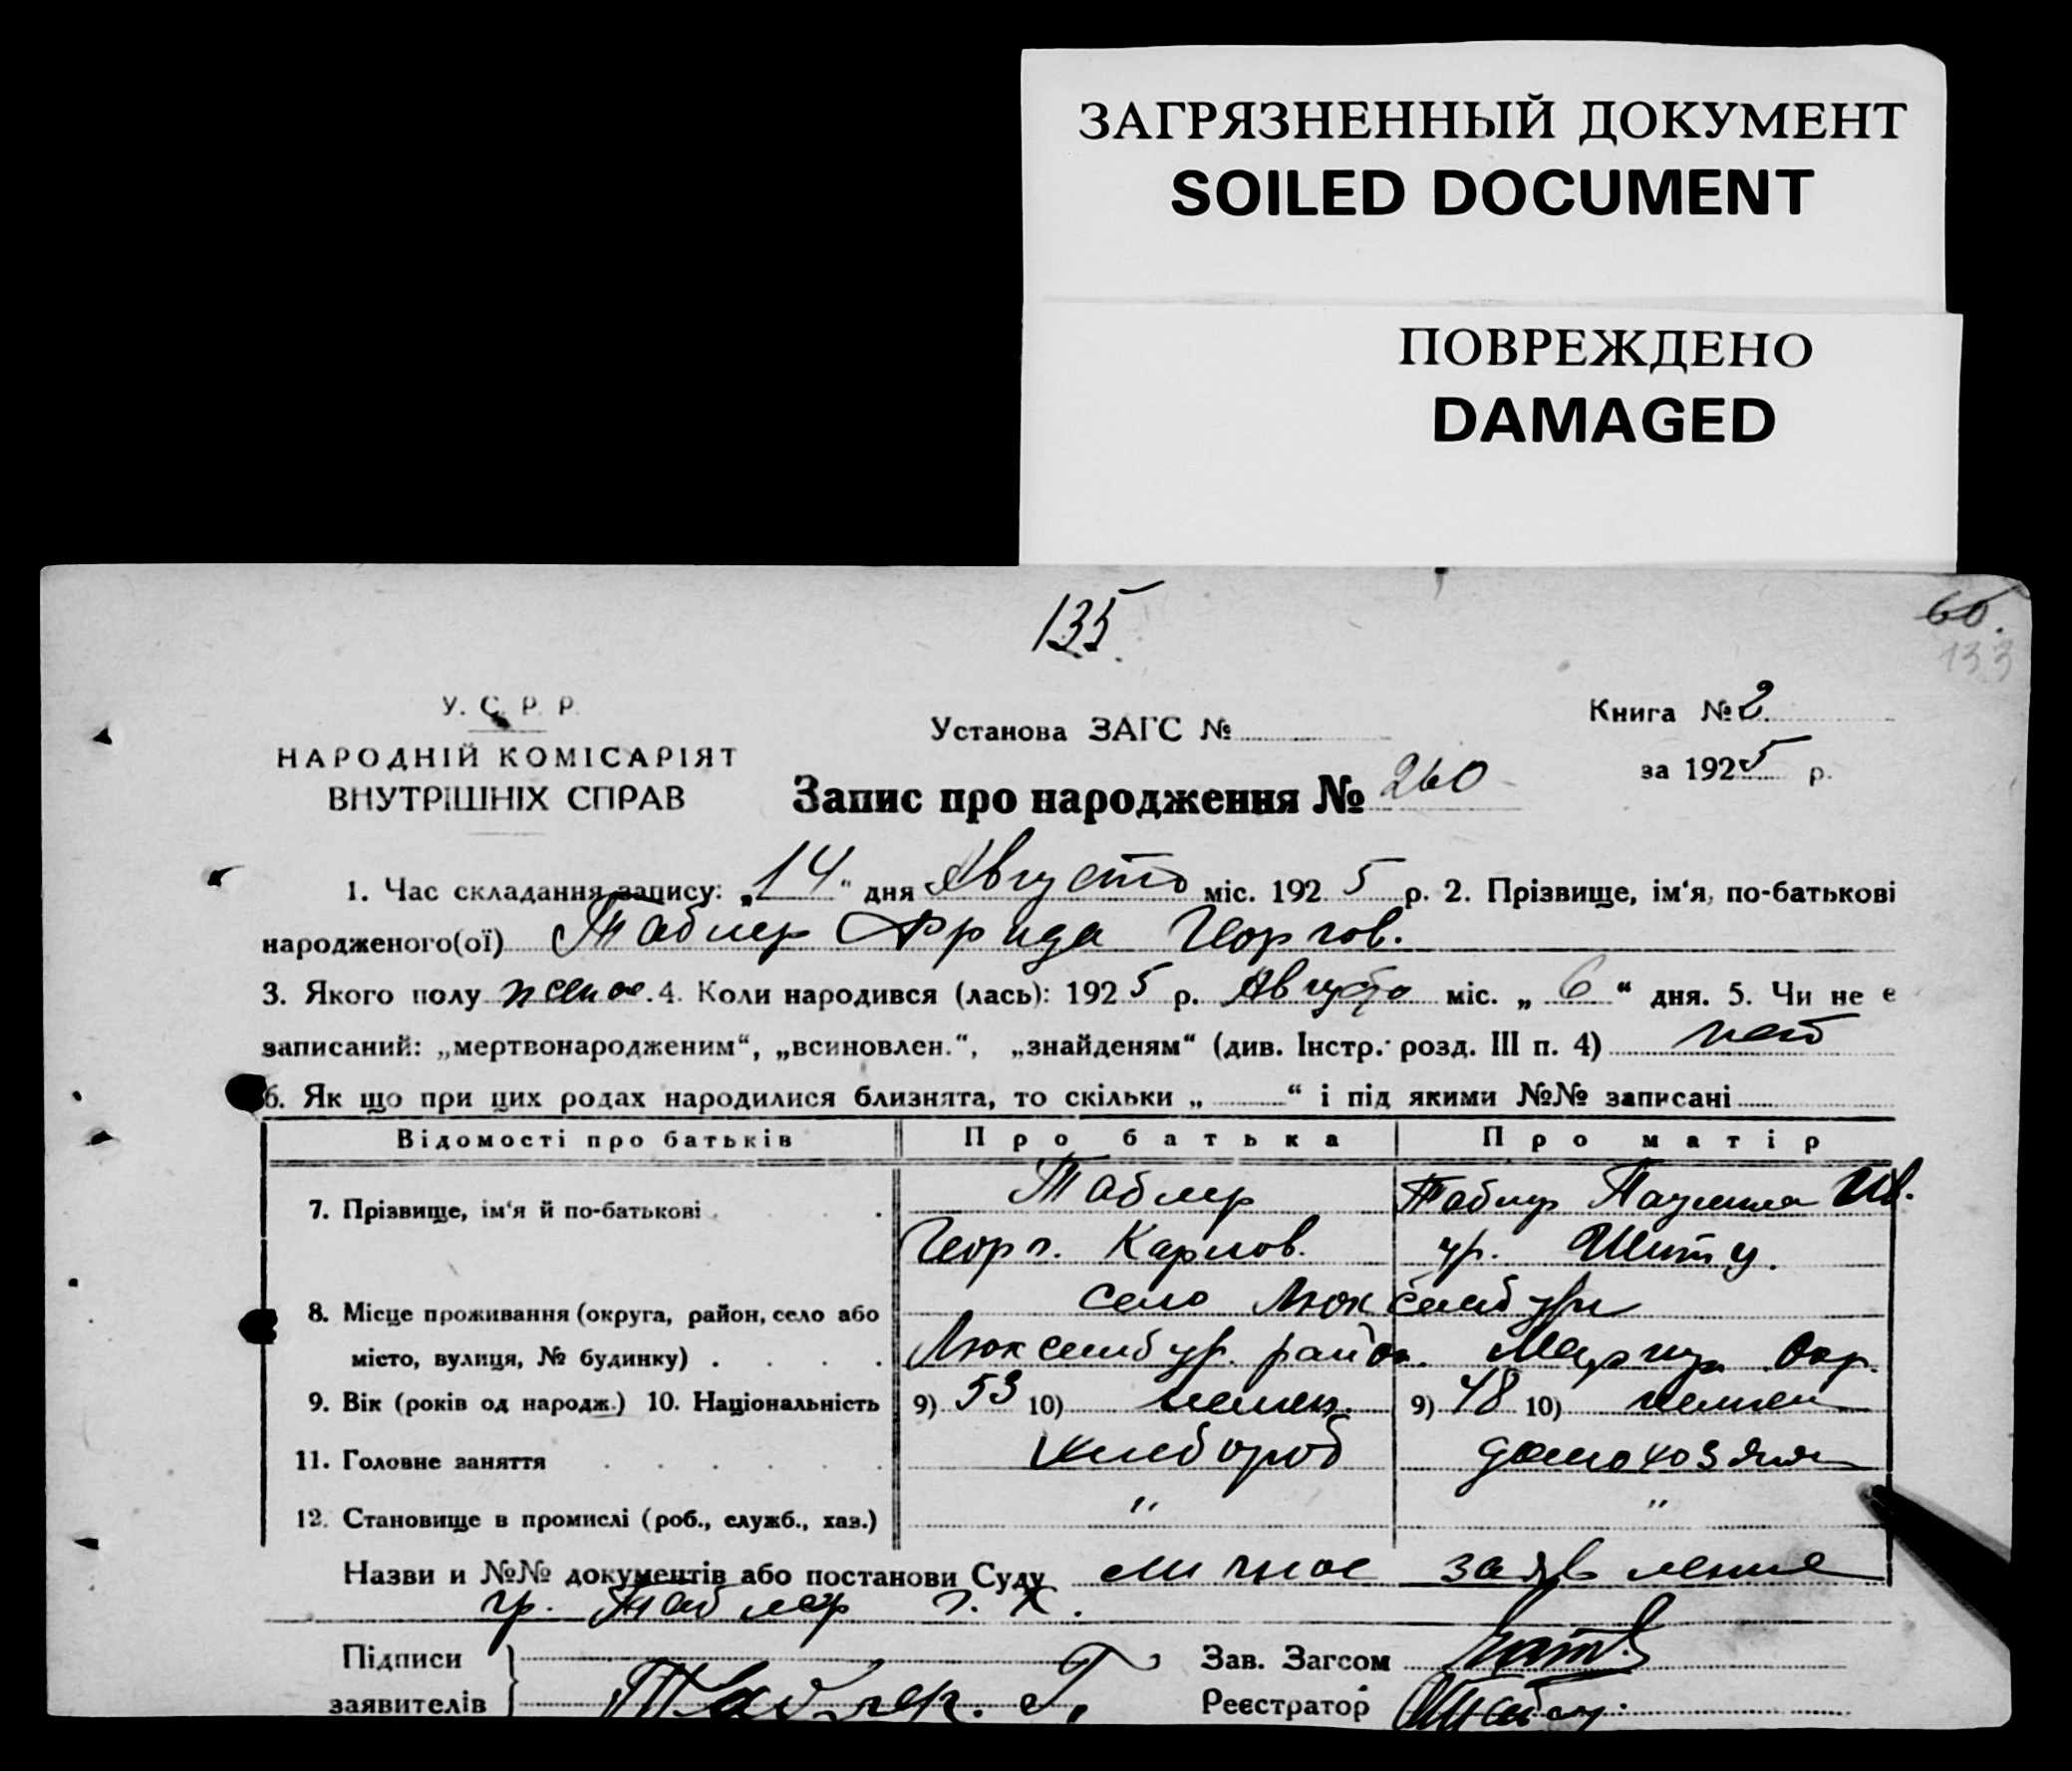 ЗАГРЯЗНЕННЫЙ ДОКУМЕНТ
SOILED DOCUMENT
ПОВРЕЖДЕНО
DAMAGED
135.
60.
133
У. С. Р. Р.
НАРОДНІЙ КОМІСАРІЯТ
ВНУТРІШНІХ СПРАВ
Установа ЗАГС №
Запис про народження № 260
Книга № 2
за 1925 р.
1. Час складання запису: „14“ дня Августа міс. 1925 р. 2. Прізвище, ім‘я, по-батькові
народженого(ої) Таблер Фрида Георгов.
3. Якого полу женск. 4. Коли народився (лась): 1925 р. Августа міс. „6“ дня. 5. Чи не є
записаний: „мертвонародженим“, „всиновлен.“, „знайденям“ (див. Інстр. розд. III п. 4) нет
6. Як що при цих родах народилися близнята, то скільки „ “ і під якими №№ записані
Відомості про батьків Про батька Про матір
7. Прізвище, ім‘я й по-батькові Таблер Таблер Паулина Ив.
Георг. Карлов. ур.
8. Місце проживання (округа, район, село або село Люксембург
місто, вулиця, № будинку) Люксембур. район. Окр.
9. Вік (років од народж.) 10. Національність 9) 53 10) немец. 9) 48 10) немец
11. Головне заняття хлебороб домохозяин
12. Становище в промислі (роб., служб., хаз.) " "
Назви и №№ документів або постанови Суду личное заявление
гр. Таблер Г. К.
Підписи
заявителів Таблер. Г.
Зав. Загсом
Реєстратор